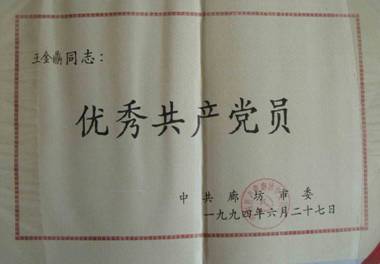 王金鼎同志：
优秀共产党员
中共廊坊市委
一九九四年六月二十七日